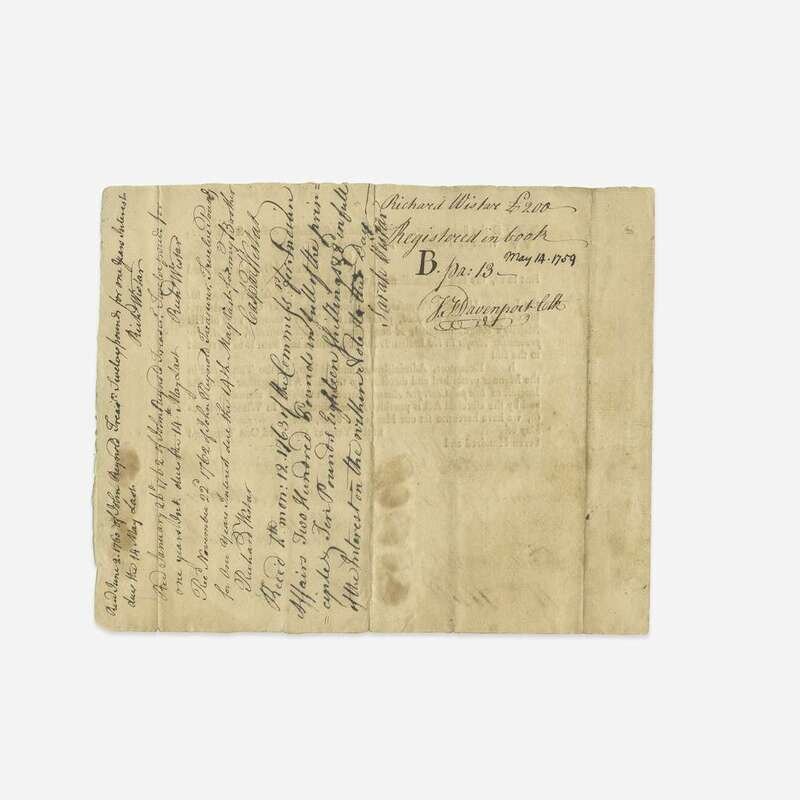 Richard Wistar £200
Registered in book
B. pa: 13
May 14. 1759
Davenport Clk
Recd June 2. 1760 of John Reynold Treasr. Twelve pounds for one Years Interest
due the 14 May Last
Richd Wistar
Recd January 26 1762 of John Reynold Treasur Twelve pound for
one years Int. due the 14th May Last Richd Wistar
Recd November 22d 1762 of John Reynold Treasurer, Twelve Pounds
for One Years Interest due the 14th May last, for my Brother
Richard Wistar
Casper Wistar
Rec'd 7th mon: 12. 1763 of the Commissrs for Indian
Affairs Two Hundred Pounds in full of the prin=
=ciple & Ten Pounds Eighteen Shillings & in full
of the Interest on the within Note to this Day
Sarah Wistar